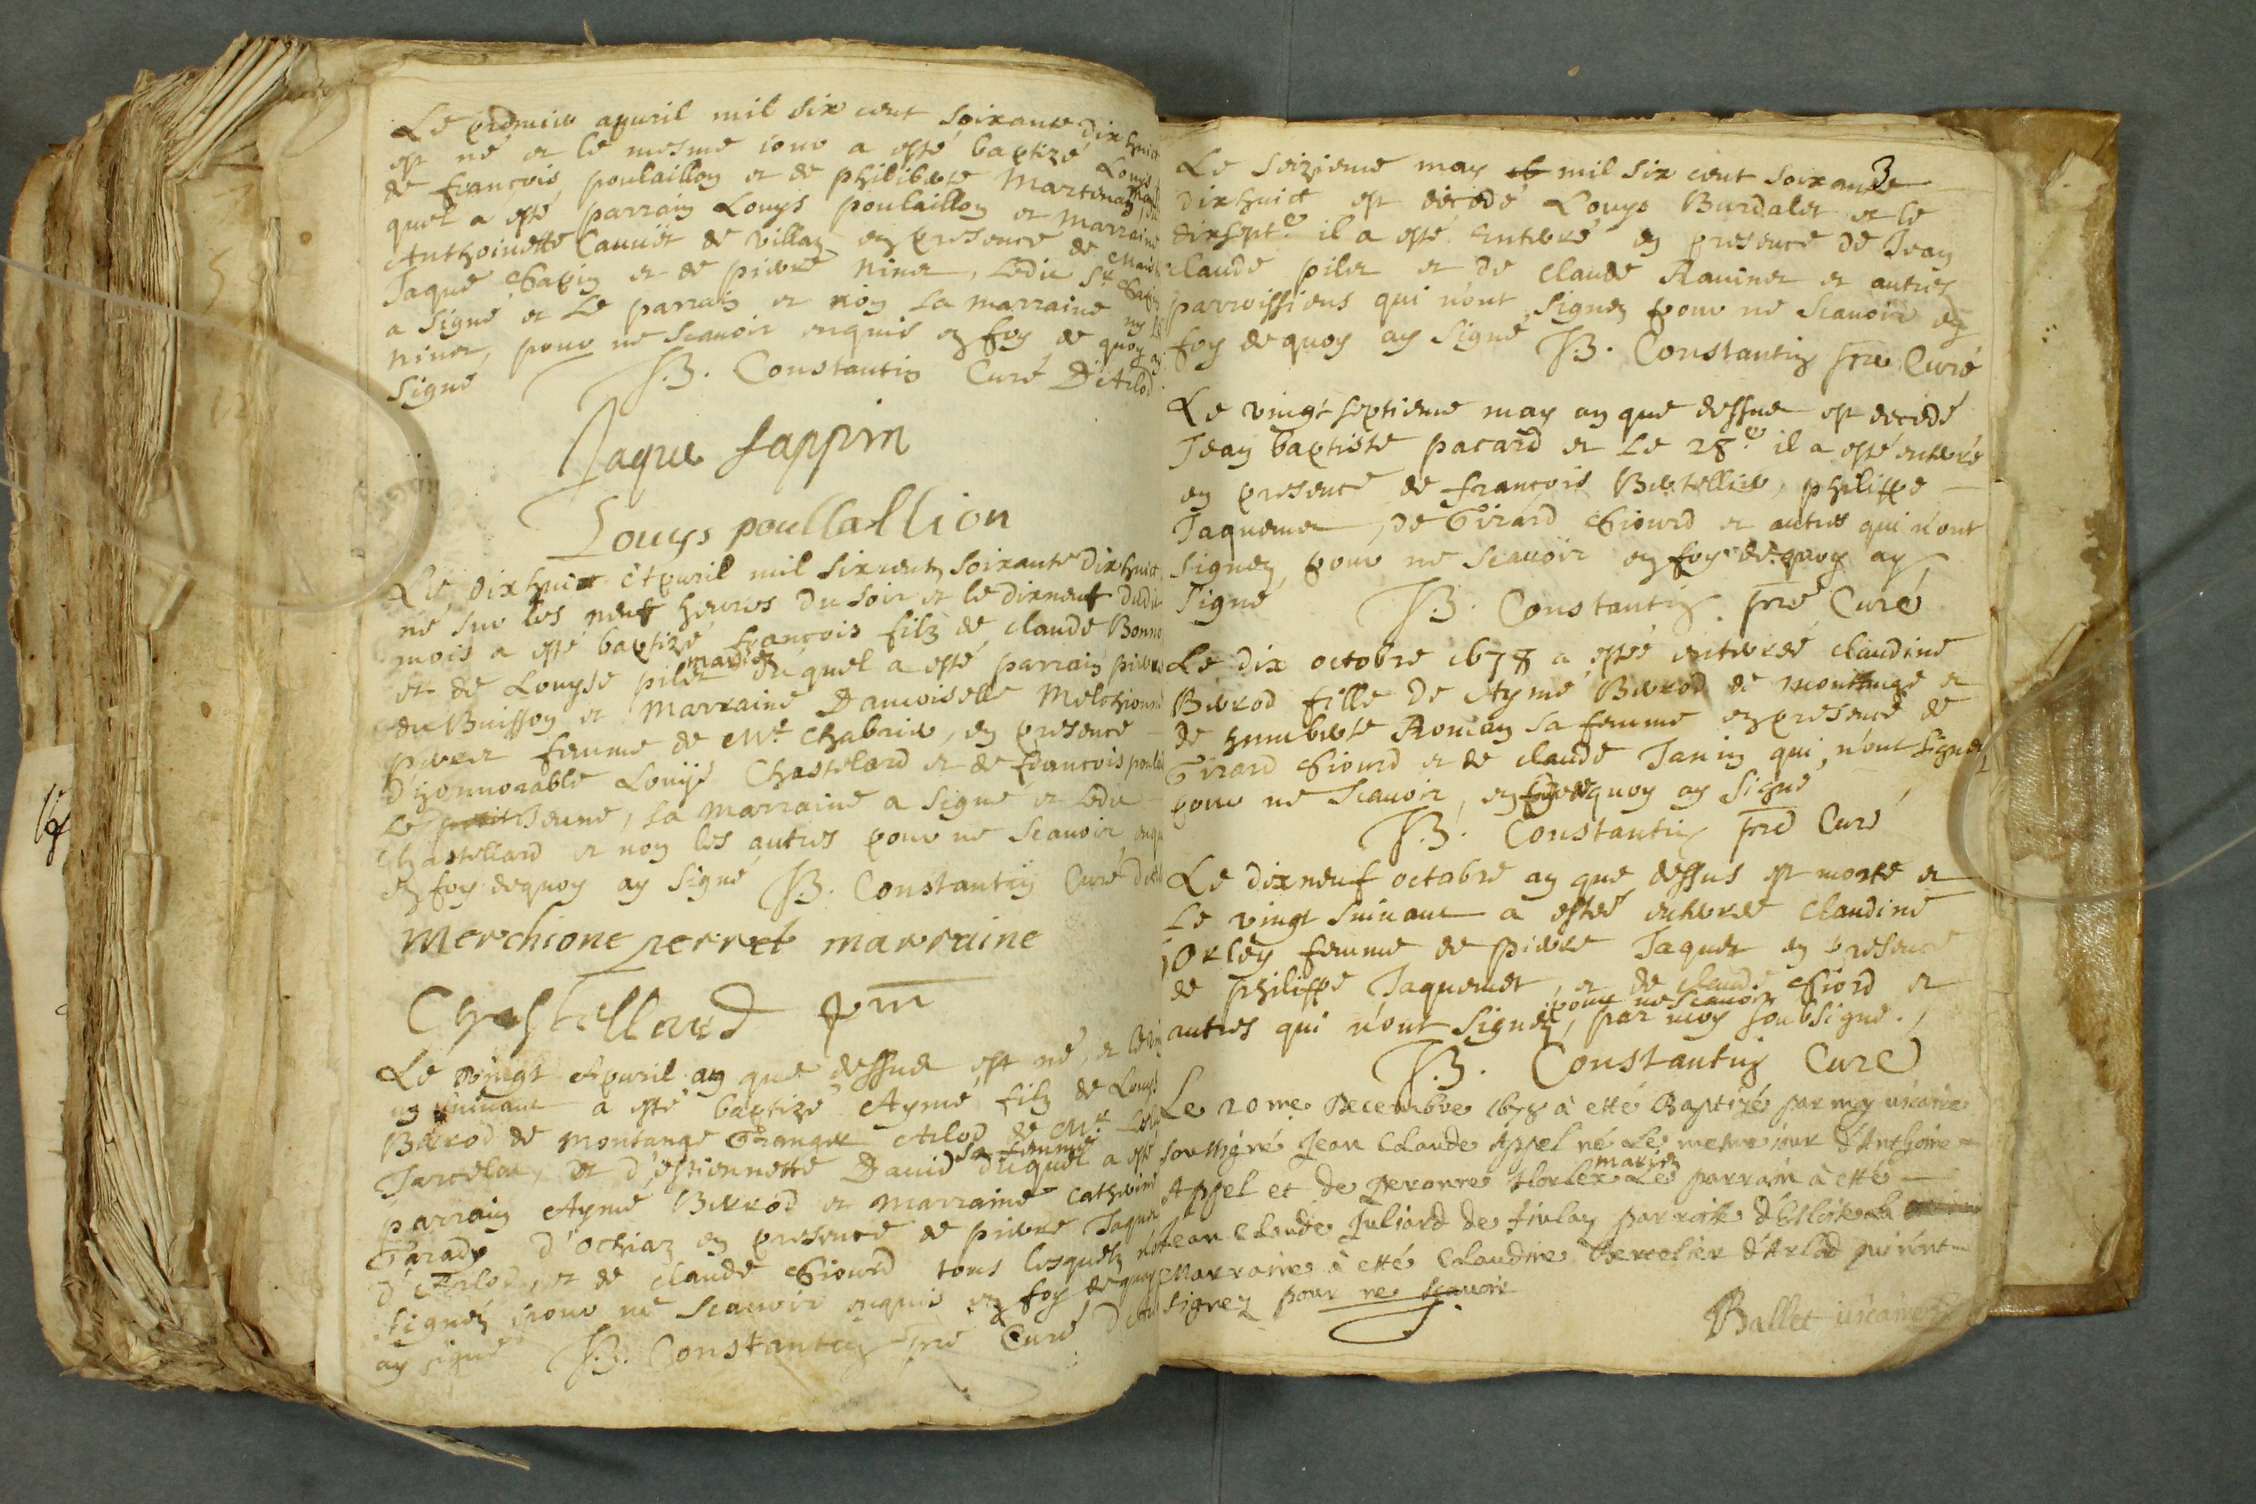 Le premier apuril mil six cent soixante dix huict
est né et le mesme iour a esté baptizé Louys
de françois poulaillon et de philiberte Martinaz
quel a esté parrain Louys poulaillon et Marraine
Anthoinette Cauuet de Villaz en presence de
Jaque Sapin et de pierre ninet, Ledit Sr Sapin
a signé et Le parrain et non La marraine ny Le
ninet, pour ne scauoir enquis en foy de quoy ay
signé J.B. Constantin Curé D'Arlod
Jaque Sappin
Louys poullallion
Le dixhuict Apuril mil six cent soixante dixhuict
né sur les neuf heures du soir et le dixneuf dudit
mois a esté baptizé françois filz de claude Bonne
et de Louyse pilet mariez duquel a esté parrain pierre
du Buisson et Marraine Damoiselle Melchionne
perret femme de Mre Chabrier, en presence
d'honnorable Louys Chastelard et de françois
Le Jeune, La Marraine a signé et Ledit
Chastellard et non les autres pour ne scauoir
en foy dequoy ay signé J.B. Constantin Curé
Merchione perret marraine
Chastellard
Le vingt Apuril an que dessus est né, et le
suiuant a esté baptizé Aymé filz de Louys
Berrod de montange Granger Arlod de Mre
et d'estiennette Dauid sa femme duquel a esté
parrain Aymé Berrod et Marraine Catherine
d'Ochiaz en presence de pierre Jaquet
d'Arlod, et de claude Giourd tous lesquelz
signéz pour ne scauoir enquis en foy dequoy
ay signé J.B. Constantin pre Curé
3
Le seizieme may mil six cent soixante
dixhuict est décedé Louys Burdalet et le
dixsepte il a esté enterré en presence de Jean
claude pilet et de claude Rauinet et autres
parroissiens qui n'ont signez pour ne scauoir en
foy dequoy ay signé J.B. Constantin pre Curé
Le vingt septieme may an que dessus est decedé
Jean baptiste pacard et Le 28e il a esté enterré
en presence de françois Bertellier, philippe
Jaquemet, de Girard Giourd et autres qui n'ont
signez pour ne scauoir en foy dequoy ay
signé J.B. Constantin pre Curé
Le dix octobre 1678 a estée enterrée claudine
Berrod fille de Aymé Berrod de montange et
de humberte Roman sa femme en presence de
Girard Giourd et de claude Janin qui n'ont signez
pour ne scauoir, en foy dequoy ay signé
J.B. Constantin pre Curé
Le dixneuf octobre an que dessus est morte et
Le vingt suiuant a estée enterrée claudine
Orley femme de pierre Jaquet en presence
de philippe Jaquemet, et de claude Giord et
autres qui n'ont signez, pour ne scauoir par moy soubsigné.
J.B. Constantin Curé
Le 20me Decembre 1678 à etté Baptizé par moy uicaire
soussigné Jean Claude Appel né Le mesme iour d'Anthoine
Appel et de Peronne Horler mariez Le parrain à etté
Jean Claude Juliard de parroisse La
Marraine à etté Claudine Bertelier d'Arlod qui n'ont
signez pour ne scauoir
Ballet uicaire